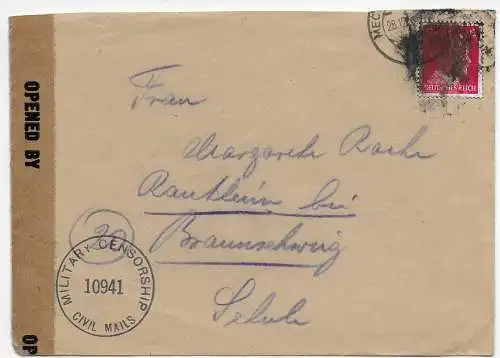 MEC
28.12.
DEUTSCHES REICH
OPENED BY
Frau
Margarete
Rautheim bei
Braunschweig
Schule
20
MILITARY CENSORSHIP
10941
CIVIL MAILS
OP